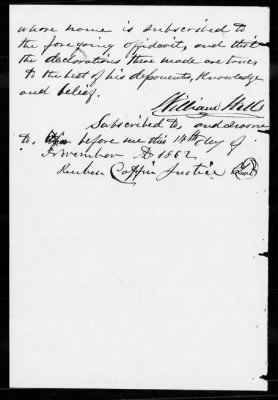 whose name is subscribed to
the foregoing affidavit, and that
the declarations there made are trues
to the best of his deponents, Knowledge
and belief.
William Mills
Subscribed to and sworn
to, before me this 14th day of
November AD 1862
Reuben Coffin Justice
Seal